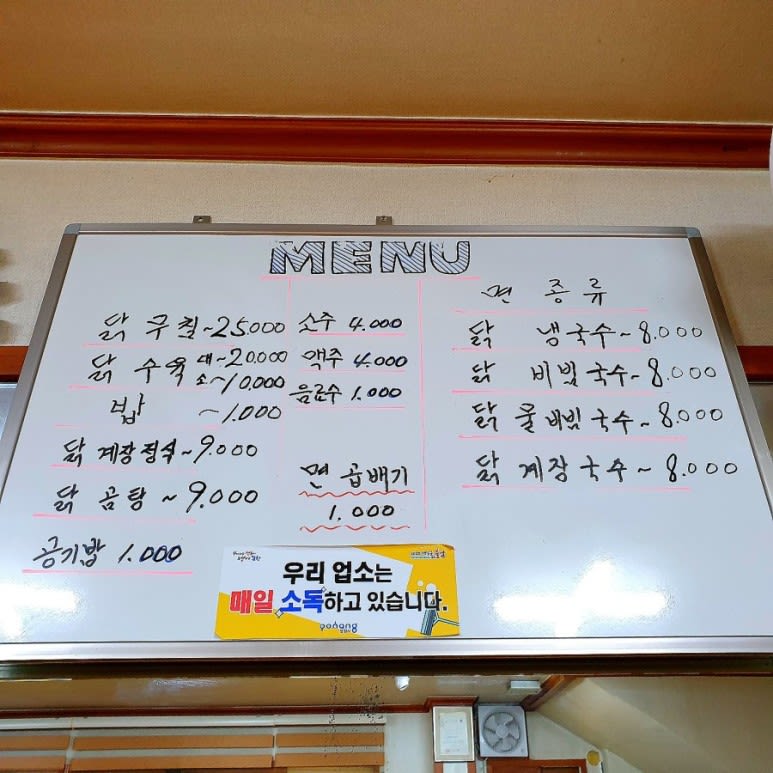 MENU
닭 무침~25.000
닭 수육 대~20.000
소~10.000
밥 ~1.000
닭 계장정식~9.000
닭 곰탕~9.000
공기밥 1.000
소주 4.000
맥주 4.000
음료수 1.000
면 곱배기
1.000
면 종류
닭 냉국수~8.000
닭 비빔국수~8.000
닭 물비빔국수~8.000
닭 계장국수~8.000
우리 업소는
매일 소독하고 있습니다.